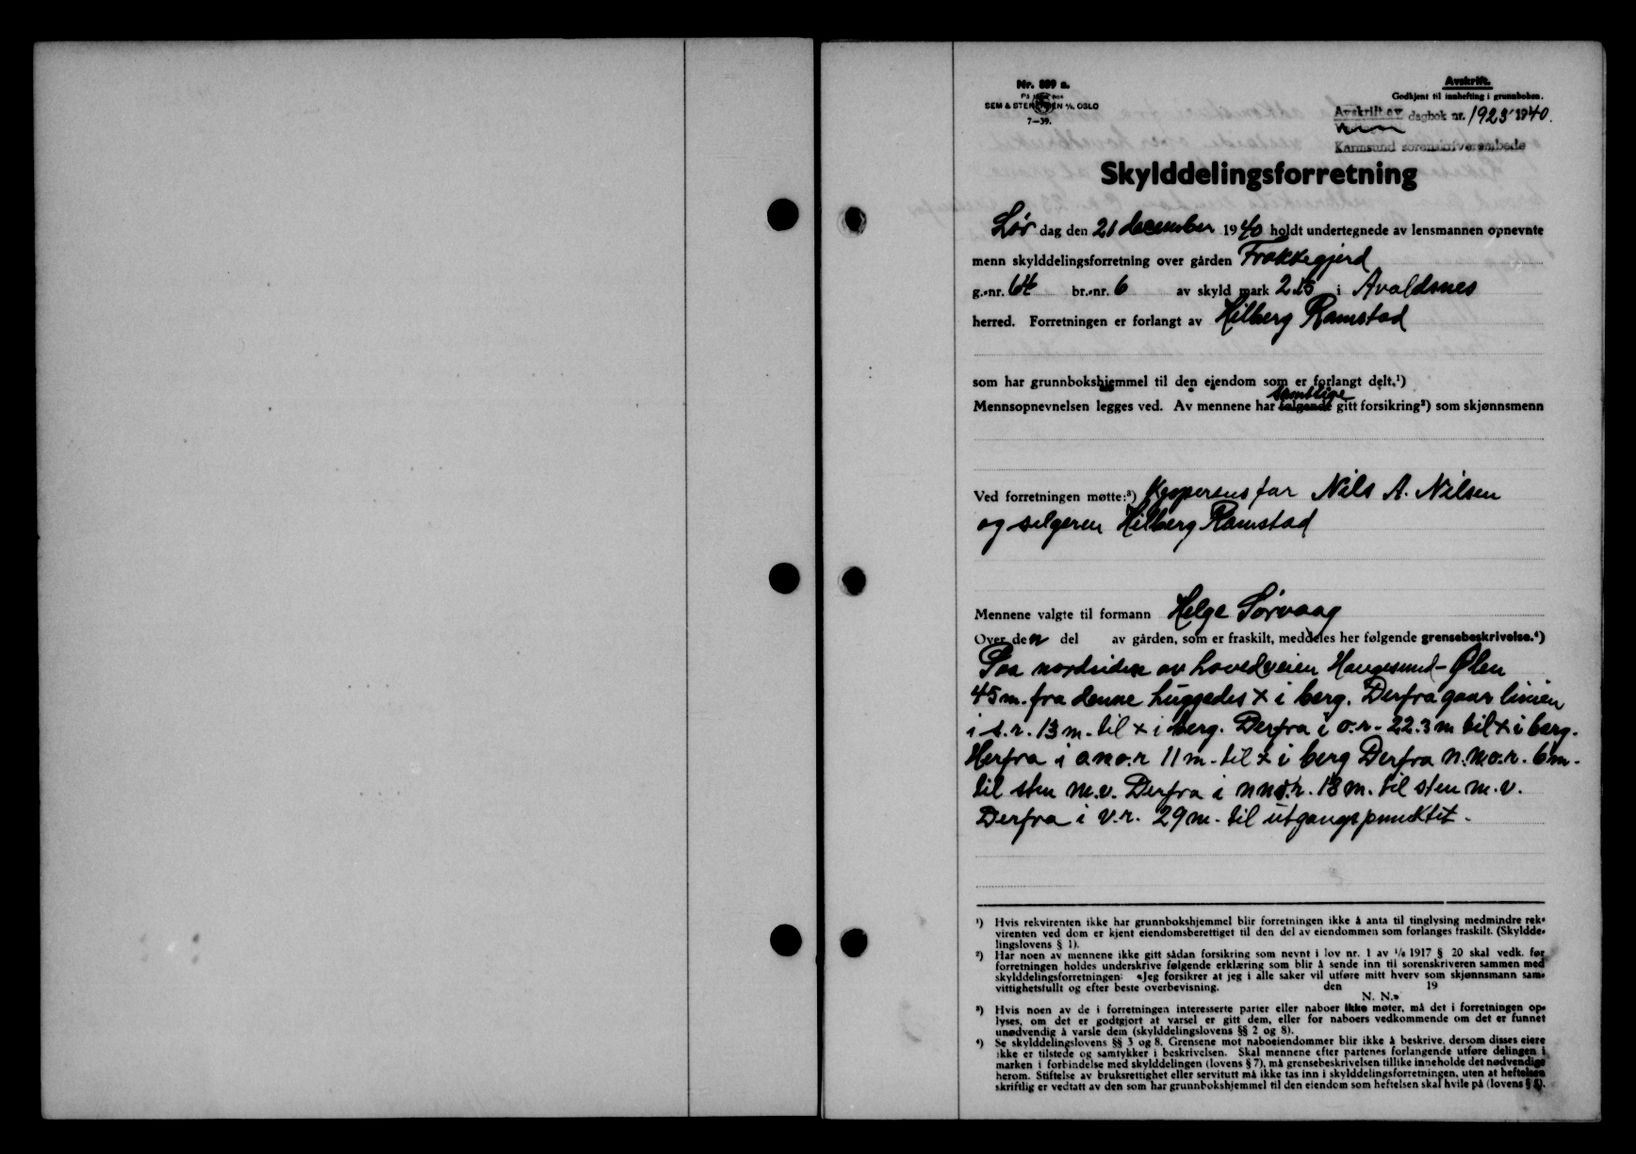 Nr. 889 a.
SEM & STENERSEN A/S, OSLO
7—39.
Avskrift.
Godkjent til innhefting i grunnboken.
Avskrift av dagbok nr. 1923 1940.
Karmsund sorenskriverembede
Skylddelingsforretning
Lør dag den 21 december 1940 holdt undertegnede av lensmannen opnevnte
menn skylddelingsforretning over gården Frakkagjerd
g.-nr. 64 br.-nr. 6 av skyld mark 2.15 i Avaldsnes
herred. Forretningen er forlangt av Hilberg Ramstad
som har grunnbokshjemmel til den eiendom som er forlangt delt.¹)
samtlige
Mennsopnevnelsen legges ved. Av mennene har følgende gitt forsikring²) som skjønnsmenn
Ved forretningen møtte:³) Kjøperens far Nils A. Nilsen
og selgeren Hilberg Ramstad
Mennene valgte til formann Helge Sørvaag
Over den del av gården, som er fraskilt, meddeles her følgende grensebeskrivelse.⁴)
Paa nordsiden av hovedveien Haugesund-Ølen
45 m. fra denne huggedes x i berg. Derfra gaar linien
i s.r. 13 m. til x i berg. Derfra i o.r. 22.3 m til x i berg.
Herfra i ono.r 11 m. til x i berg Derfra n.no.r. 6 m.
til sten m.v. Derfra i nno.r. 18 m. til sten m.v.
Derfra i v.r. 29 m. til utgangspunktet.
¹) Hvis rekvirenten ikke har grunnbokshjemmel blir forretningen ikke å anta til tinglysing medmindre rek-
virenten ved dom er kjent eiendomsberettiget til den del av eiendommen som forlanges fraskilt. (Skyldde-
lingslovens § 1).
²) Har noen av mennene ikke gitt sådan forsikring som nevnt i lov nr. 1 av 1/6 1917 § 20 skal vedk. før
forretningen holdes underskrive følgende erklæring som blir å sende inn til sorenskriveren sammen med
skylddelingsforretningen: «Jeg forsikrer at jeg i alle saker vil utføre mitt hverv som skjønnsmann sam-
vittighetsfullt og efter beste overbevisning. den 19
N. N.»
³) Hvis noen av de i forretningen interesserte parter eller naboer ikke møter, må det i forretningen op-
lyses, om det er godtgjort at varsel er gitt dem, eller for naboers vedkommende om det er funnet
unødvendig å varsle dem (skylddelingslovens §§ 2 og 8).
⁴) Se skylddelingslovens §§ 3 og 8. Grensene mot naboeiendommer blir ikke å beskrive, dersom disses eiere
ikke er tilstede og samtykker i beskrivelsen. Skal mennene efter partenes forlangende utføre delingen i
marken i forbindelse med skylddelingen (lovens § 7), må grensebeskrivelsen tillike inneholde det nødvendige
herom. Stiftelse av bruksrettighet eller servitutt må ikke tas inn i skylddelingsforretningen, uten at heftelsen
skriftlig er vedtatt av den som har grunnbokshjemmel til den eiendom som heftelsen skal hvile på (lovens § 8).